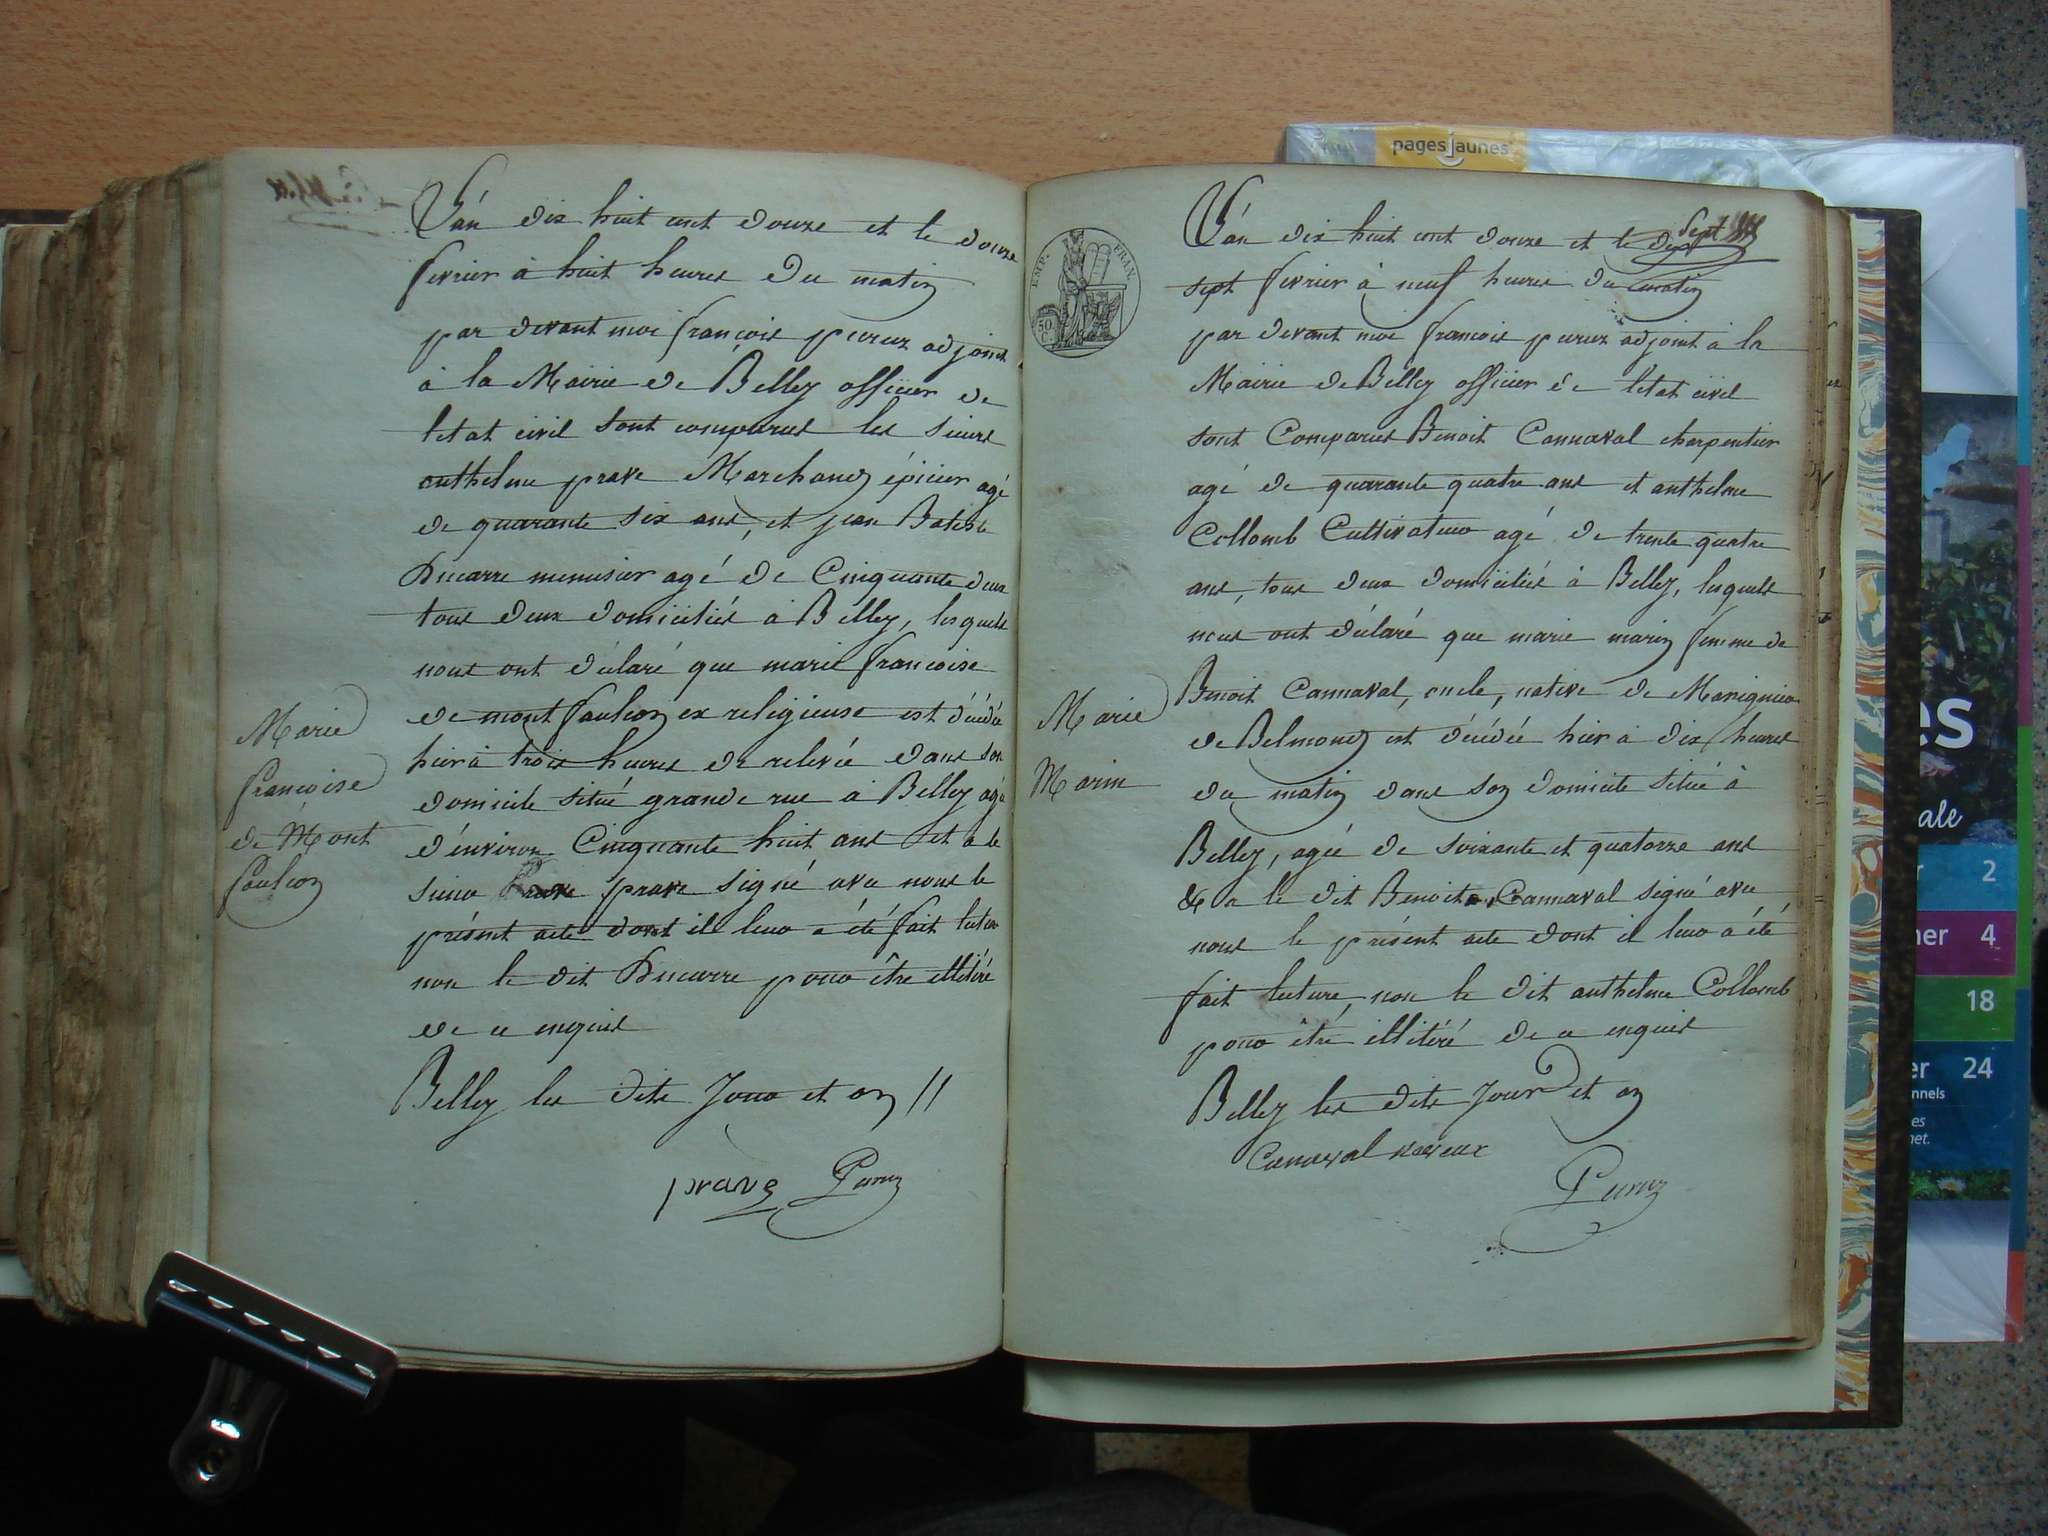 L'an dix huit cent douze et le douze
fevrier à huit heures du matin
par devant moi françois peruz adjoint
à la Mairie de Belley officier de
letat civil sont comparus les sieurs
anthelme prave Marchand épicier agé
de quarante six ans, et jean Batiste
Ducarre menusier agé de Cinquante deux
tous deux domiciliés à Belley, lesquels
nous ont déclaré que marie françoise
de montfaulcon ex religieuse est décédée
hier à trois heures de relevée dans son
domicile situé grande rue à Belley agé
d'environ Cinquante huit ans et a le
sieur prave signé avec nous le
présent acte dont il leur a été fait lecture
non le dit Ducarre pour être illitéré
de ce enquis
Belley les dits Jour et an //
prave Peruz
Marie
françoise
de Mont
faulcon
L'an dix huit cent douze et le dix Sept
sept fevrier à neuf heures du matin
par devant moi françois peruz adjoint à la
Mairie de Belley officier de letat civil
sont Comparus Benoit Cannaval charpentier
agé de quarante quatre ans et anthelme
Collomb Cultivateur agé de trente quatre
ans, tous deux domiciliés à Belley, lesquels
nous ont déclaré que marie marin femme de
Benoit Cannaval, oncle, native de Marignieu
de Belmond est décédée hier à dix heures
du matin dans son domicile situé à
Belley, agée de soixante et quatorze ans
& a le dit Benoit Cannaval signé avec
nous le présent acte dont il leur a été
fait lecture, non le dit anthelme Collomb
pour être illitéré de ce enquis
Belley les dits jour et an
Canaval neveux
Peruz
Marie
Marin
EMP. FRAN.
50
C.
pages jaunes
es
ale
2
ner 4
18
er 24
nnels
es
net.